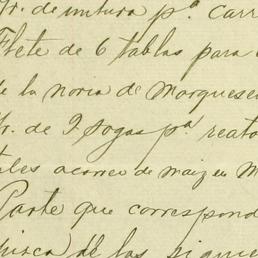 Yr. de untura pª. carr
Flete de 6 tablas para
de la noria de Marquese
Yr. de 9 sogas pª reato
tales acarreo de maiz en M
Parte que correspond
de las siguie